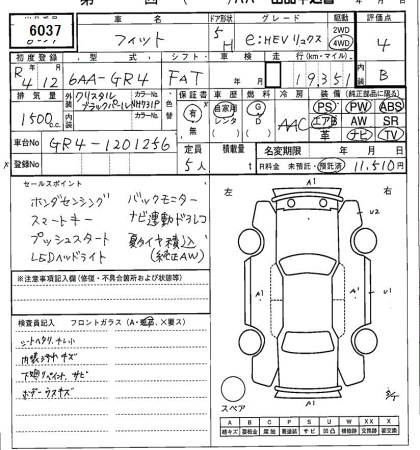 6037
車名
フィット
ドア形状
5
H
グレード
e:HEV リュクス
駆動
2WD
4WD
評価点
4
B
初度登録
R4 12
型式
6AA-GR4
シフト
FAT
走行(km・マイル)
19,351
排気量
1500cc
外装
クリスタルブラックパール
カラーNo.
NH731P
内装
カラーNo.
色替
車庫
有
無
車歴
自家用
レンタ
燃料
G
D
冷房
AAC
装備
(純正部品に限る)
PS PW ABS
エアB AW SR
革 ナビ TV
車台No
GR4-1201256
登録No
定員
5人
積載量
t
名変期限 年 月 日
R料金 未預託・預託済 11,510円
セールスポイント
ホンダセンシング バックモニター
スマートキー ナビ連動ドラレコ
プッシュスタート 夏タイヤ積込
LEDヘッドライト (純正AW)
※注意事項記入欄(修復・不具合箇所および状態等)
検査員記入 フロントガラス
シートヘタリ、ナレ小
内装スレキズ
下廻リペイント、サビ
ボデーウスキズ
左 右
A1
U2
A1 A1 U1
A1
スペア
A B C P S U W X XX
線キズ 腐蝕 要塗装 サビ 凹凸 補修跡 要交換